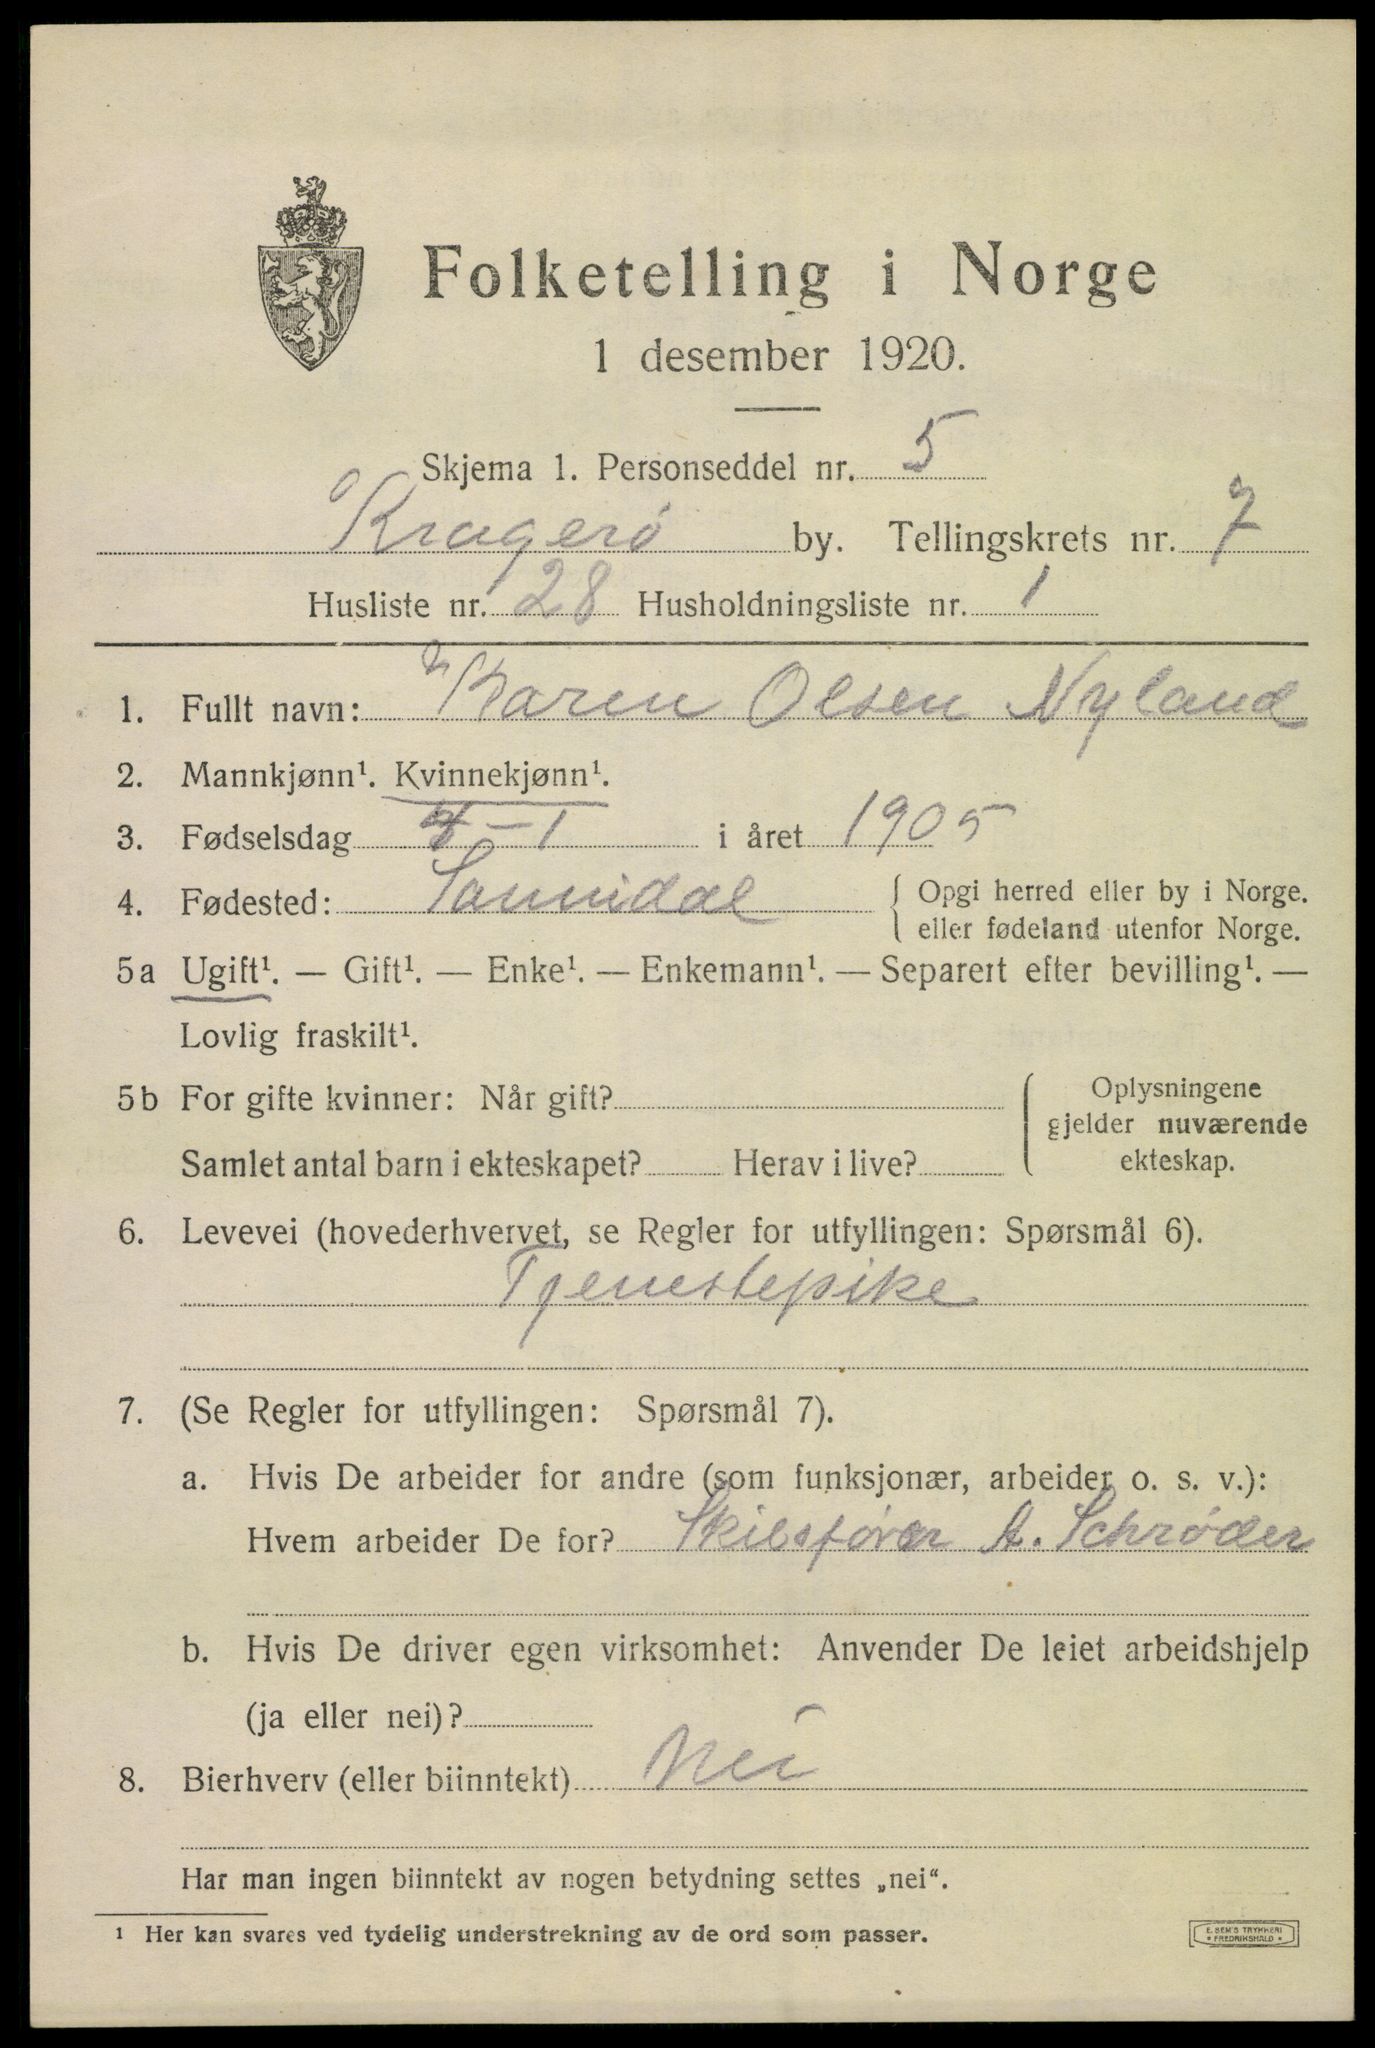 Folketelling i Norge
1 desember 1920.
Skjema 1. Personseddel nr. 5
Kragerø by. Tellingskrets nr. 7
Husliste nr. 28 Husholdningsliste nr. 1
1. Fullt navn: Karen Olsen Nyland
2. Mannkjønn¹. Kvinnekjønn¹.
3. Fødselsdag - 1 i året 1905
4. Fødested: Sannidal { Opgi herred eller by i Norge.
eller fødeland utenfor Norge.
5a Ugift¹. — Gift¹. — Enke¹. — Enkemann¹. — Separert efter bevilling¹. —
Lovlig fraskilt¹.
5b For gifte kvinner: Når gift? Oplysningene
gjelder nuværende
Samlet antal barn i ekteskapet? Herav i live? ekteskap.
6. Levevei (hovederhvervet, se Regler for utfyllingen: Spørsmål 6).
Tjenestepike
7. (Se Regler for utfyllingen: Spørsmål 7).
a. Hvis De arbeider for andre (som funksjonær, arbeider o. s. v.):
Hvem arbeider De for? Skibsfører A. Schrøder
b. Hvis De driver egen virksomhet: Anvender De leiet arbeidshjelp
(ja eller nei)?
8. Bierhverv (eller biinntekt) Nei
Har man ingen biinntekt av nogen betydning settes „nei“.
¹ Her kan svares ved tydelig understrekning av de ord som passer.
E. SEM'S TRYKKERI
* FREDRIKSHALD *